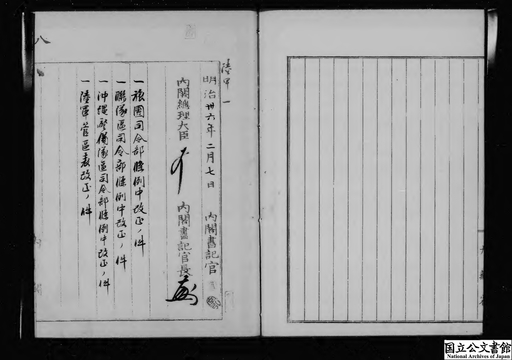 陸甲一
明治卅六年二月七日
内閣書記官
内閣総理大臣
内閣書記官長
一旅団司令部條例中改正ノ件
一聯隊区司令部條例中改正ノ件
一沖縄警備隊区司令部條例中改正ノ件
一陸軍管区表改正ノ件
八
国立公文書館
National Archives of Japan